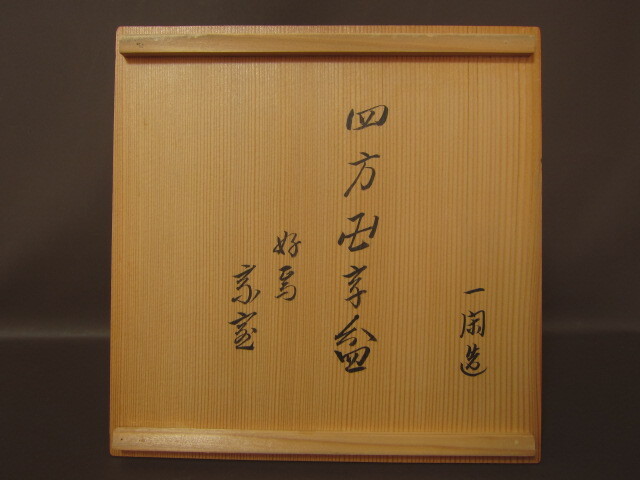 一閑造
四方卍字盆
好焉
宗室